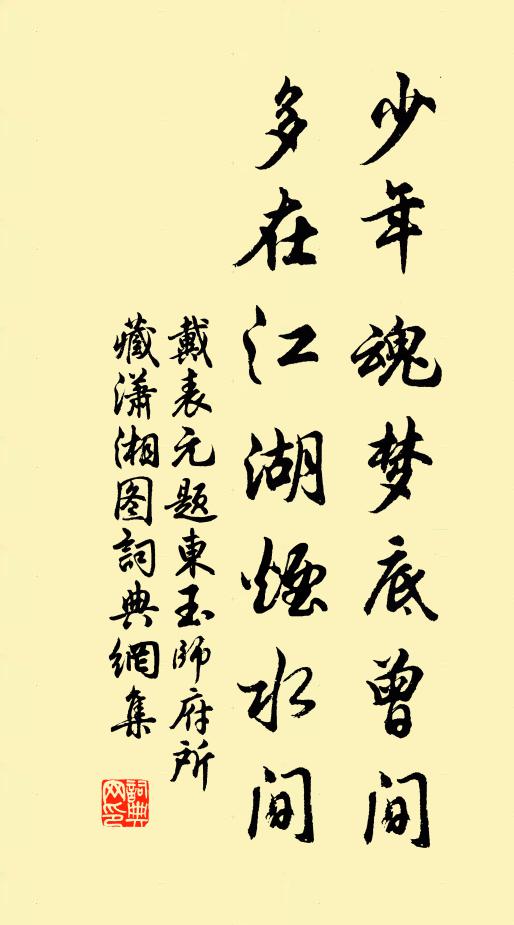 少年魂梦底曾间
多在江湖煙水间
戴表元题東玉師府所
藏潇湘图詞典網集
詞典
网印